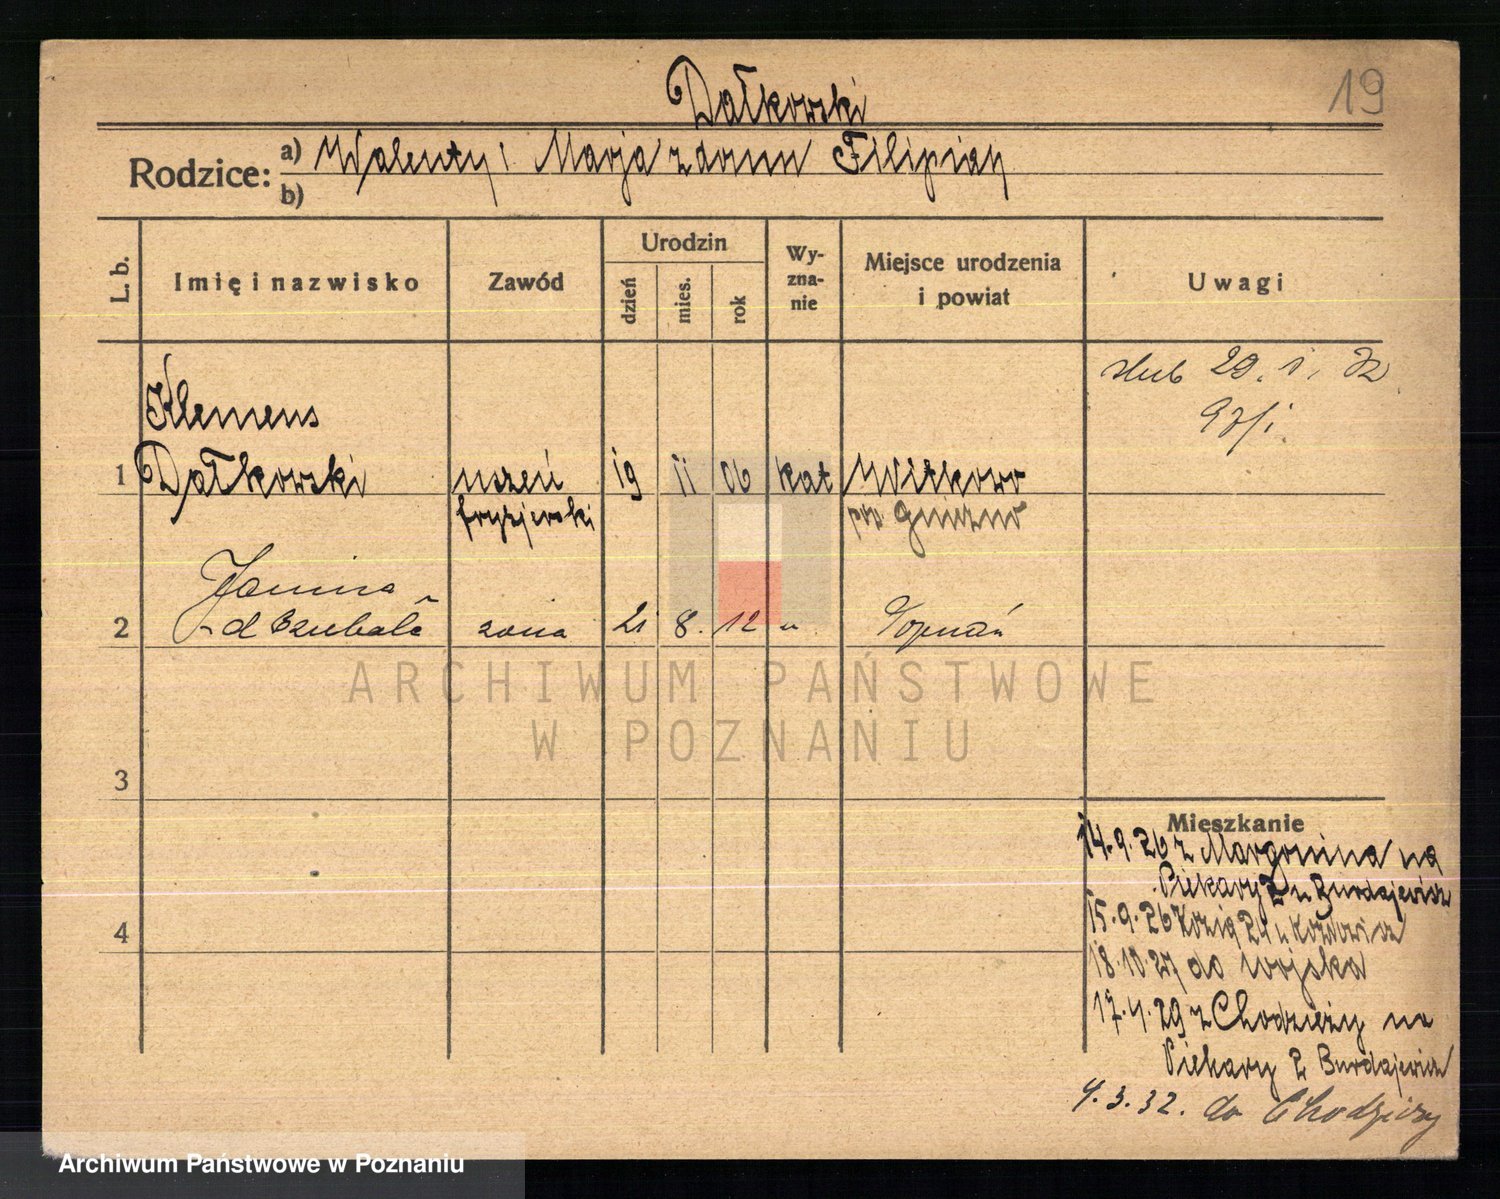 Dałkowski
19
Rodzice:
a) Walenty i Marja z domu Filipiak
b)
L. b.
Imię i nazwisko
Zawód
Urodzin
dzień
mies.
rok
Wy-
zna-
nie
Miejsce urodzenia
i powiat
Uwagi
ślub 29. 1. 32
Klemens
1 Dałkowski uczeń 19 11 06 kat Witkowo
fryzjerski pow Gniezno
Janina
2 d Czubała żona 21 8. 12 " Poznań
3
4
Mieszkanie
14.9.26 z Margonina na
Piekary 2 u Burdajewicz
15.9.26 Kozia 24 u
18.10.27 do wojska
17.4.29 z Chodzieży na
Piekary 2 Burdajewicz
4.3.32. do Chodzieży
ARCHIWUM PAŃSTWOWE
W POZNANIU
Archiwum Państwowe w Poznaniu